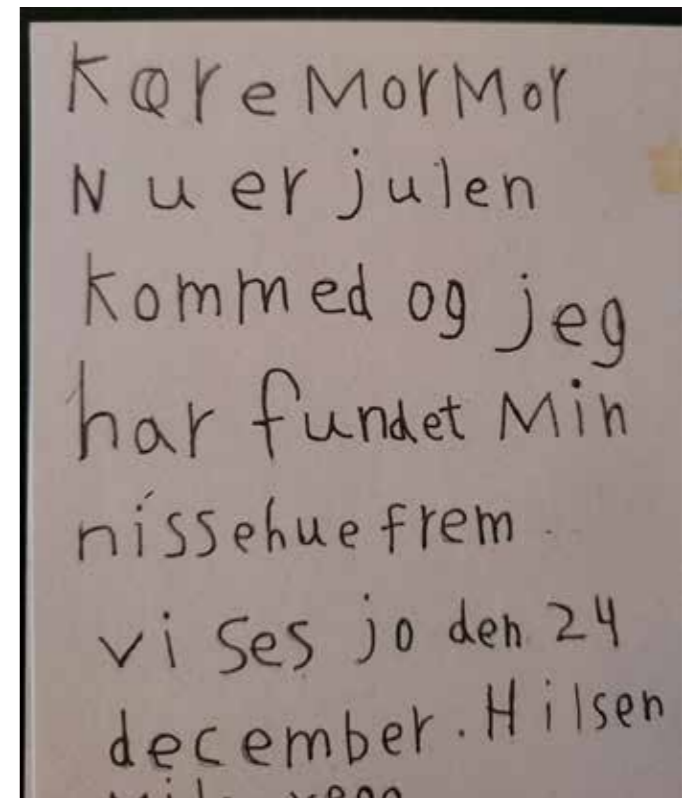 Kære MorMor
Nu er julen
kommed og jeg
har fundet Min
nissehue frem
vi ses jo den 24
december. Hilsen